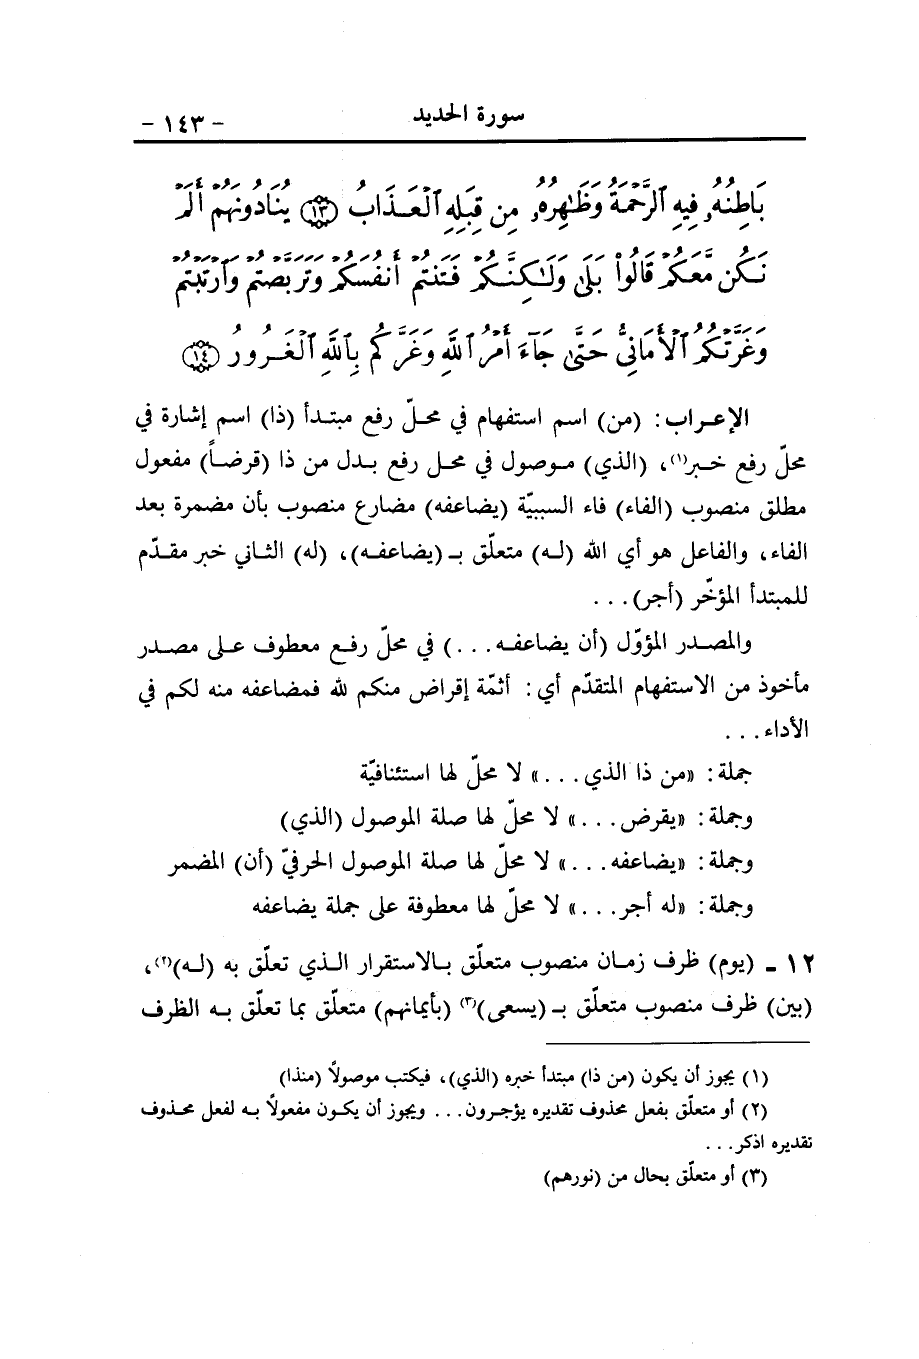 سورة الحديد
- ١٤٣ -
بَاطِنُهُۥ فِيهِ ٱلرَّحْمَةُ وَظَٰهِرُهُۥ مِن قِبَلِهِ ٱلْعَذَابُ ١٣ يُنَادُونَهُمْ أَلَمْ
نَكُن مَّعَكُمْ قَالُوا۟ بَلَىٰ وَلَٰكِنَّكُمْ فَتَنتُمْ أَنفُسَكُمْ وَتَرَبَّصْتُمْ وَٱرْتَبْتُمْ
وَغَرَّتْكُمُ ٱلْأَمَانِىُّ حَتَّىٰ جَآءَ أَمْرُ ٱللَّهِ وَغَرَّكُم بِٱللَّهِ ٱلْغَرُورُ ١٤
الإعراب: (من) اسم استفهام في محلّ رفع مبتدأ (ذا) اسم إشارة في
محلّ رفع خبر(١)، (الذي) موصول في محل رفع بدل من ذا (قرضاً) مفعول
مطلق منصوب (الفاء) فاء السببيّة (يضاعفه) مضارع منصوب بأن مضمرة بعد
الفاء، والفاعل هو أي الله (له) متعلّق بـ (يضاعفه)، (له) الثاني خبر مقدّم
للمبتدأ المؤخّر (أجر)...
والمصدر المؤوّل (أن يضاعفه...) في محلّ رفع معطوف على مصدر
مأخوذ من الاستفهام المتقدّم أي: أثمّة إقراض منكم لله فمضاعفه منه لكم في
الأداء...
جملة: «من ذا الذي...» لا محلّ لها استئنافيّة
وجملة: «يقرض...» لا محلّ لها صلة الموصول (الذي)
وجملة: «يضاعفه...» لا محلّ لها صلة الموصول الحرفيّ (أن) المضمر
وجملة: «له أجر...» لا محلّ لها معطوفة على جملة يضاعفه
١٢ ـ (يوم) ظرف زمان منصوب متعلّق بالاستقرار الذي تعلّق به (له)(٢)،
(بين) ظرف منصوب متعلّق بـ (يسعى)(٣) (بأيمانهم) متعلّق بما تعلّق به الظرف
(١) يجوز أن يكون (من ذا) مبتدأ خبره (الذي)، فيكتب موصولاً (منذا)
(٢) أو متعلّق بفعل محذوف تقديره يؤجرون... ويجوز أن يكون مفعولاً به لفعل محذوف
تقديره اذكر...
(٣) أو متعلّق بحال من (نورهم)